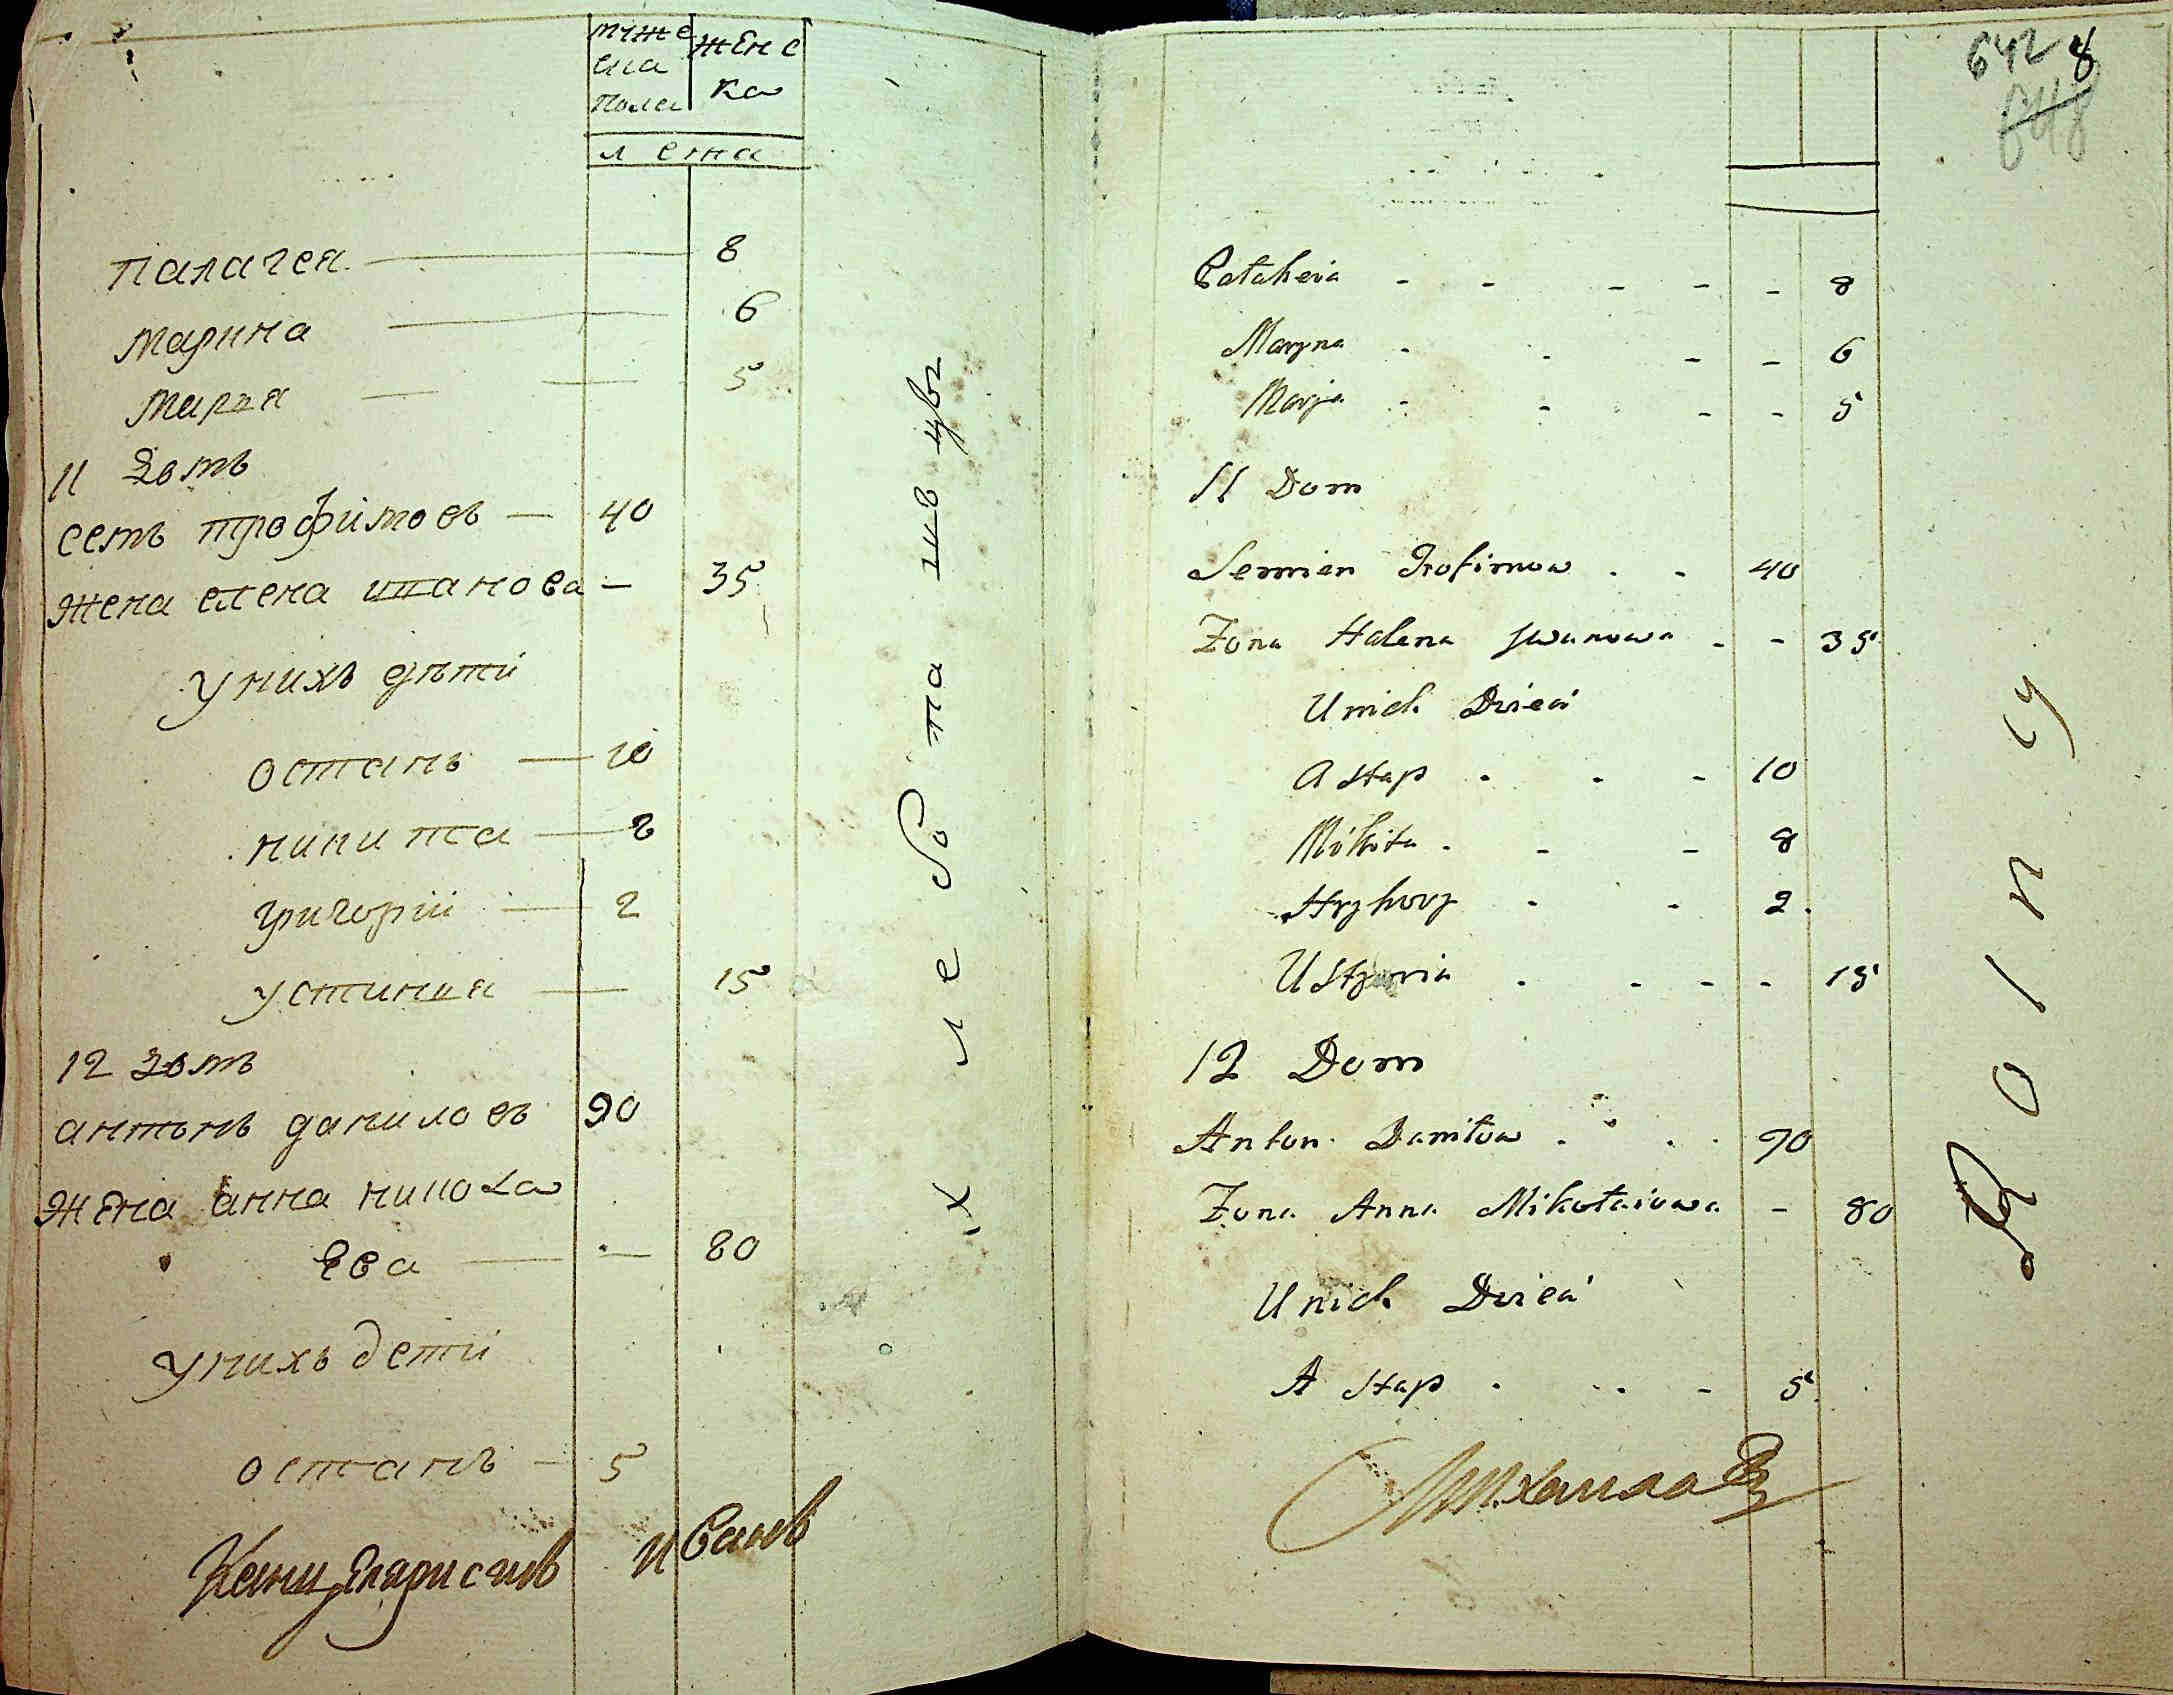 муже женс
ска ка
пола
лета
палагея — 8
марина — 6
маръя — 5
11 домъ
семъ трофимовъ — 40
жена елена ивановa — 35
У нихъ дети
остапъ — 10
никита — 8
григорiй — 2
устинья — 15
12 домъ
антонъ даниловъ 90
жена анна никола
ева — 80
У нихъ дети
остапъ — 5
Иванъ
642
648
Pałaheia - - - - - 8
Maryna - - - - 6
Marja - - - - 5
11 Dom
Semien Trofimow - - 40
Zona Halena Jwanowa - - 35
Unich Dzieci
Astap - - - 10
Mikita - - - 8
Hryhory - - 2
Ustynia - - - - 15
12 Dom
Anton Daniłow - - - 90
Zona Anna Mikołaiowa - 80
Unich Dzieci
Astap - - - 5
Михаилов